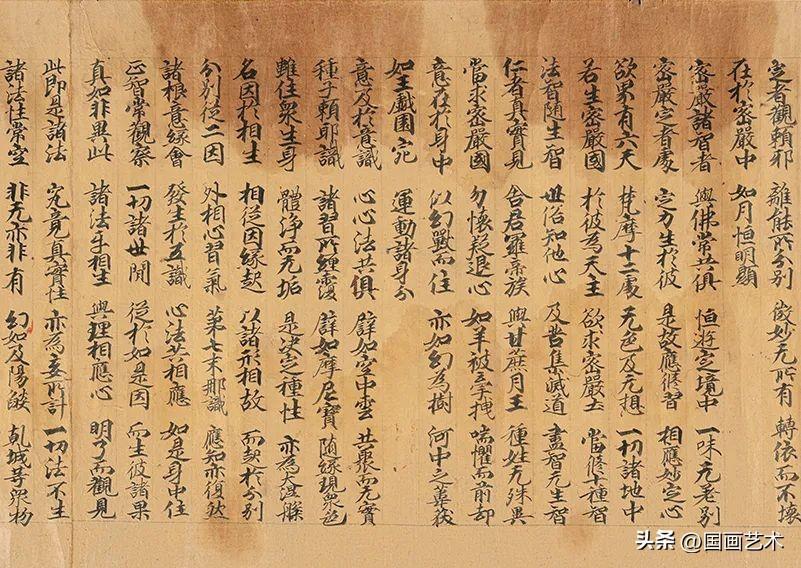 定者觀賴耶 離能所分別 微妙无所有 轉依而不壞
在於密嚴中 如月恒明顯
密嚴諸智者 與佛常共俱 恒遊定境中 一味无差別
密嚴定者處 定力生於彼 是故應修習 相應妙定心
欲界有六天 梵摩十二處 无色及无想 一切諸地中
若生密嚴國 於彼為天主 欲求密嚴土 當修十種智
法智隨生智 世俗知他心 及苦集滅道 盡智无生智
仁者真實見 舍君羅崇族 與甘蔗月王 種姓无殊異
當求密嚴國 勿懷疑退心 如羊被牽 喘懼而前却
意在於身中 以幻獸而住 亦如幻為樹 何中之葦荻
如王戲園苑 運動諸身分
意及於意識 心心法共俱 譬如空中雲 共聚而无實
種子賴耶識 諸習所纏覆 譬如摩尼寶 隨緣現眾色
雖住衆生身 體淨而无垢 是決定種性 亦為大涅槃
名因於相生 相從因緣起 以諸形相故 而起於分別
分別從二因 外相心習氣 第七末那識 應知亦復然
諸根意緣會 發生於五識 心法共相應 如是身中住
正智常觀察 一切諸世間 從於如是因 而生彼諸果
真如非異此 諸法互相生 與理相應心 明了而觀見
此即是諸法 究竟真實性 亦為妄所計 一切法不生
諸法性常空 非无亦非有 幻如及陽燄 乾城等眾物
头条 @国画艺术